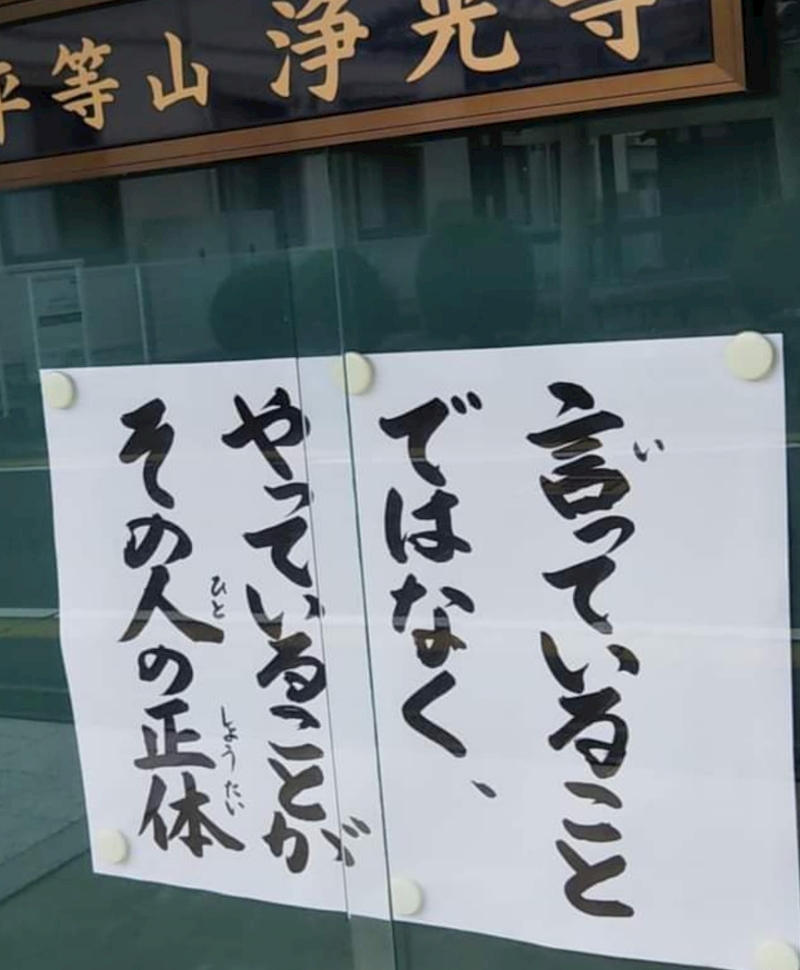 平等山 浄光寺
言っていること
い
ではなく、
やっていることが
その人の正体
ひと
しょうたい